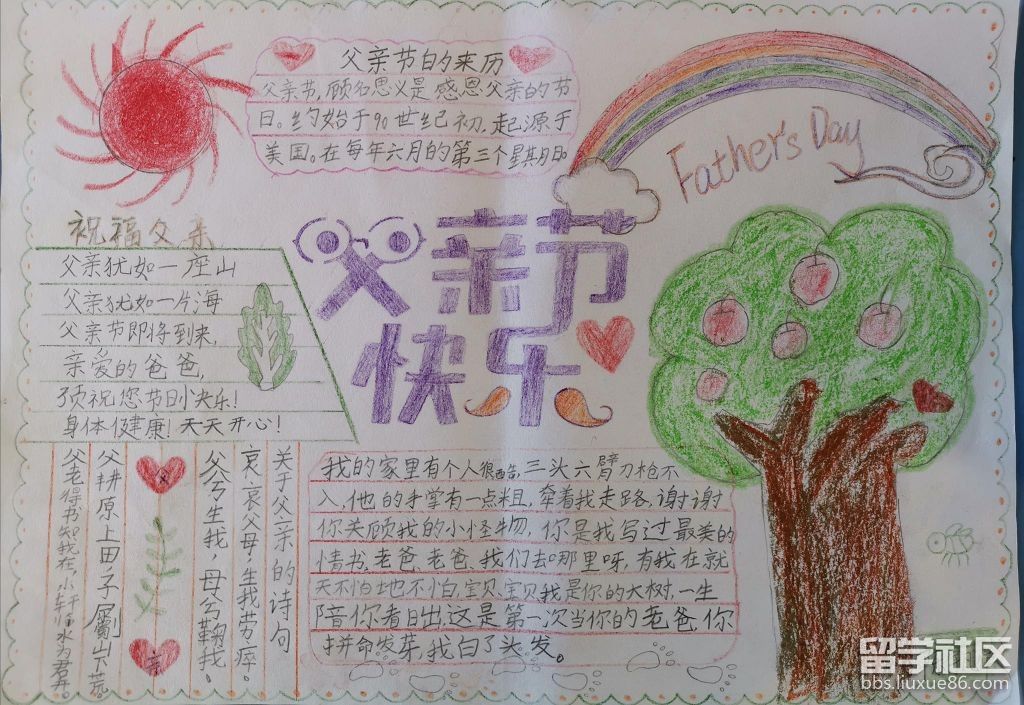 父亲节的来历
父亲节,顾名思义是感恩父亲的节
日。约始于90世纪初,起源于
美国。在每年六月的第三个星期日
Father's Day
祝福父亲
父亲犹如一座山
父亲犹如一片海
父亲节即将到来,
亲爱的爸爸,
预祝您节日快乐!
身体健康!天天开心!
父亲节
快乐
关于父亲的诗句
哀哀父母,生我劳瘁。
父兮生我,母兮鞠我。
父耕原上田,子劚山下荒。
父老得书知我在,小轩临水为君开。
我的家里有个人很酷,三头六臂刀枪不
入,他的手掌有一点粗,牵着我走路,谢谢
你关顾我的小怪物,你是我写过最美的
情书,老爸,老爸,我们去哪里呀,有我在就
天不怕地不怕,宝贝,宝贝我是你的大树,一生
陪你看日出,这是第一次当你的老爸,你
拼命发芽,我白了头发。
留学社区
bbs.liuxue86.com